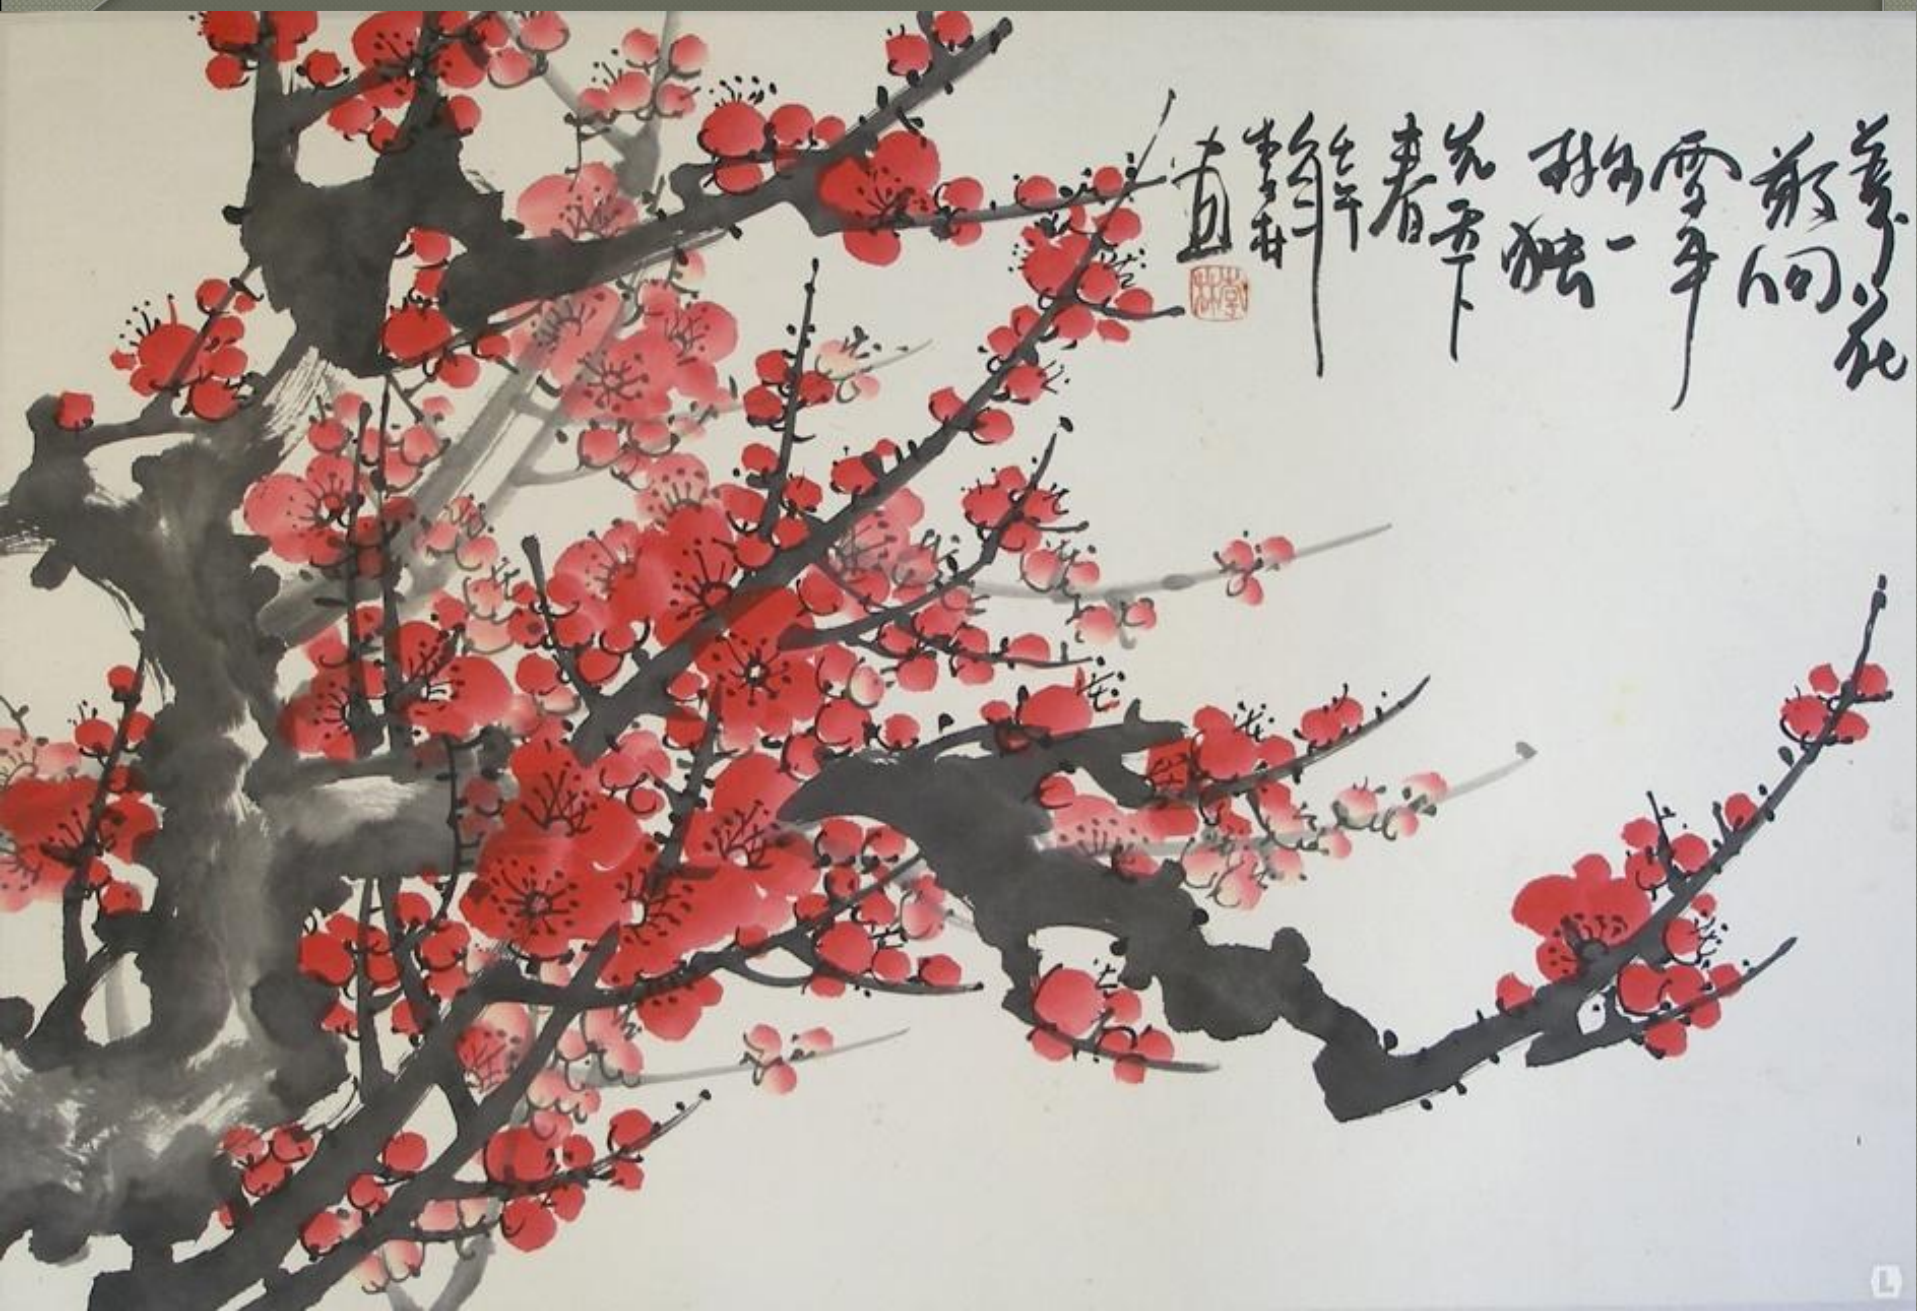 萬花
敢向
雪中
出一
树独
先天下
春
壬午
年
画